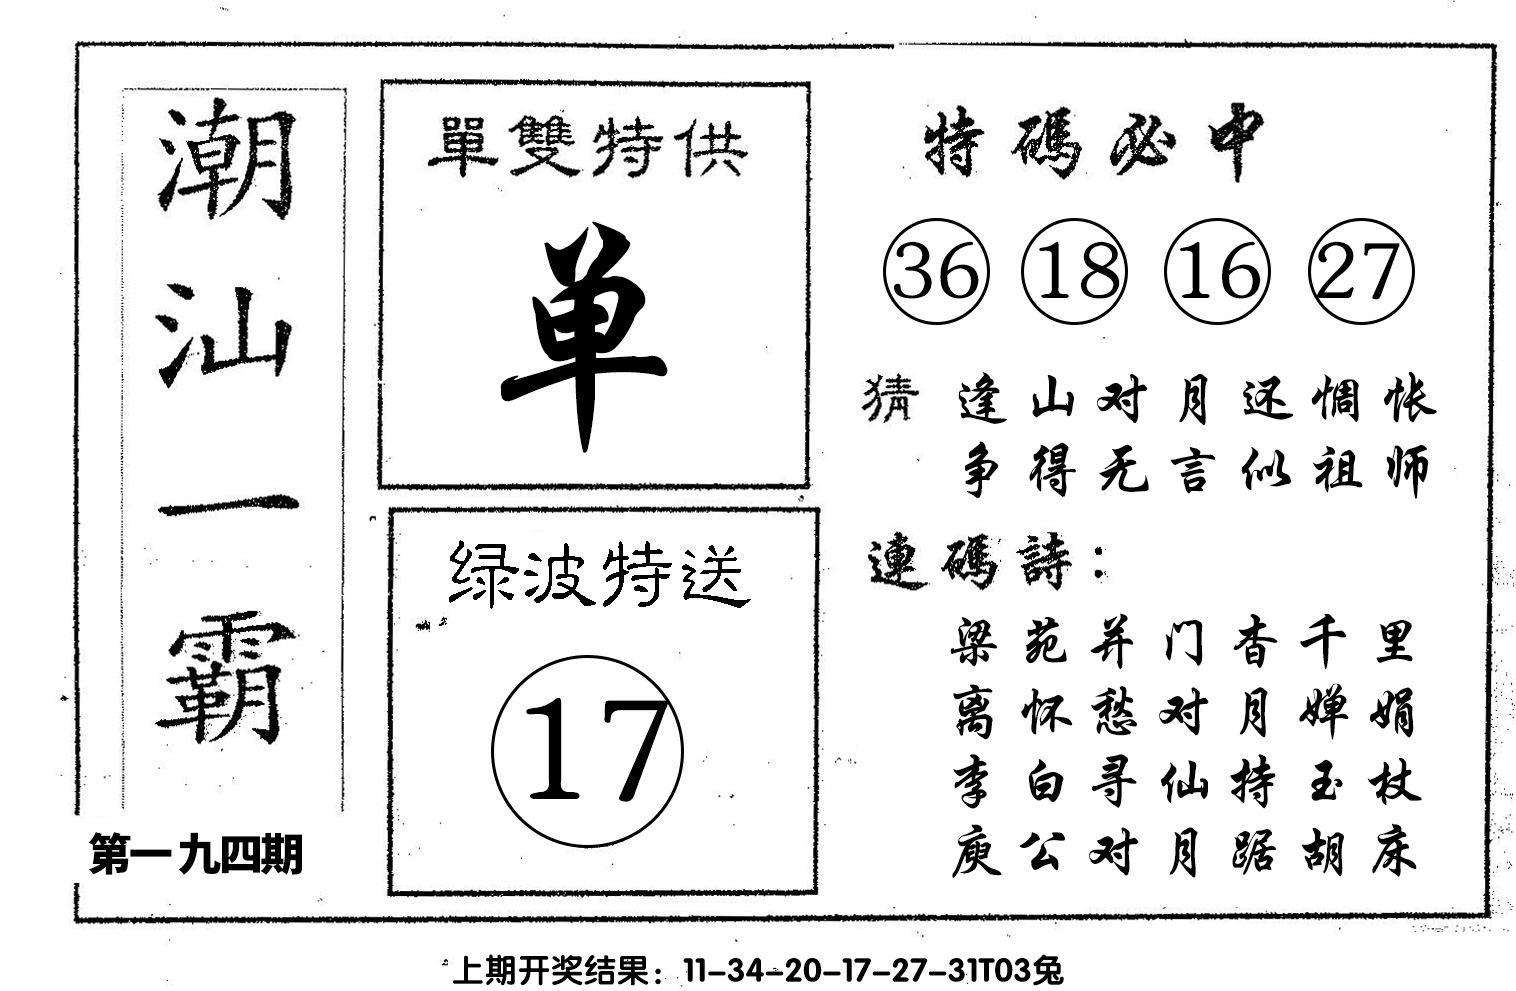 潮汕一霸
第一九四期
單雙特供
单
绿波特送
17
特碼必中
36 18 16 27
猜 逢山对月还惆怅
争得无言似祖师
連碼詩：
梁苑并门杳千里
离怀愁对月婵娟
李白寻仙持玉杖
庾公对月踞胡床
上期开奖结果：11-34-20-17-27-31T03兔